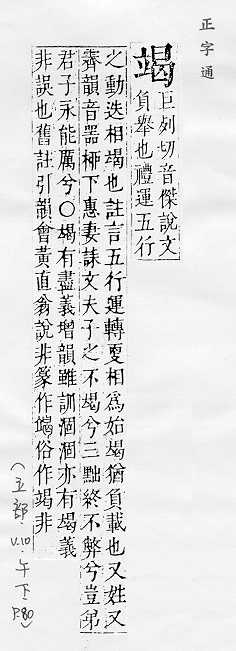 正字通
竭
巨列切音傑說文
負舉也禮運五行
之動迭相竭也註言五行運轉更相為始竭猶負載也又姓又
霽韻音器柳下惠妻誄文夫子之不竭兮三黜終不弊兮豈弟
君子永能厲兮〇竭有盡義增韻雖訓涸涸亦有竭義
非誤也舊註引韻會黃直翁說非篆作竭俗作竭非
(立部 V.10.午下 P.80)